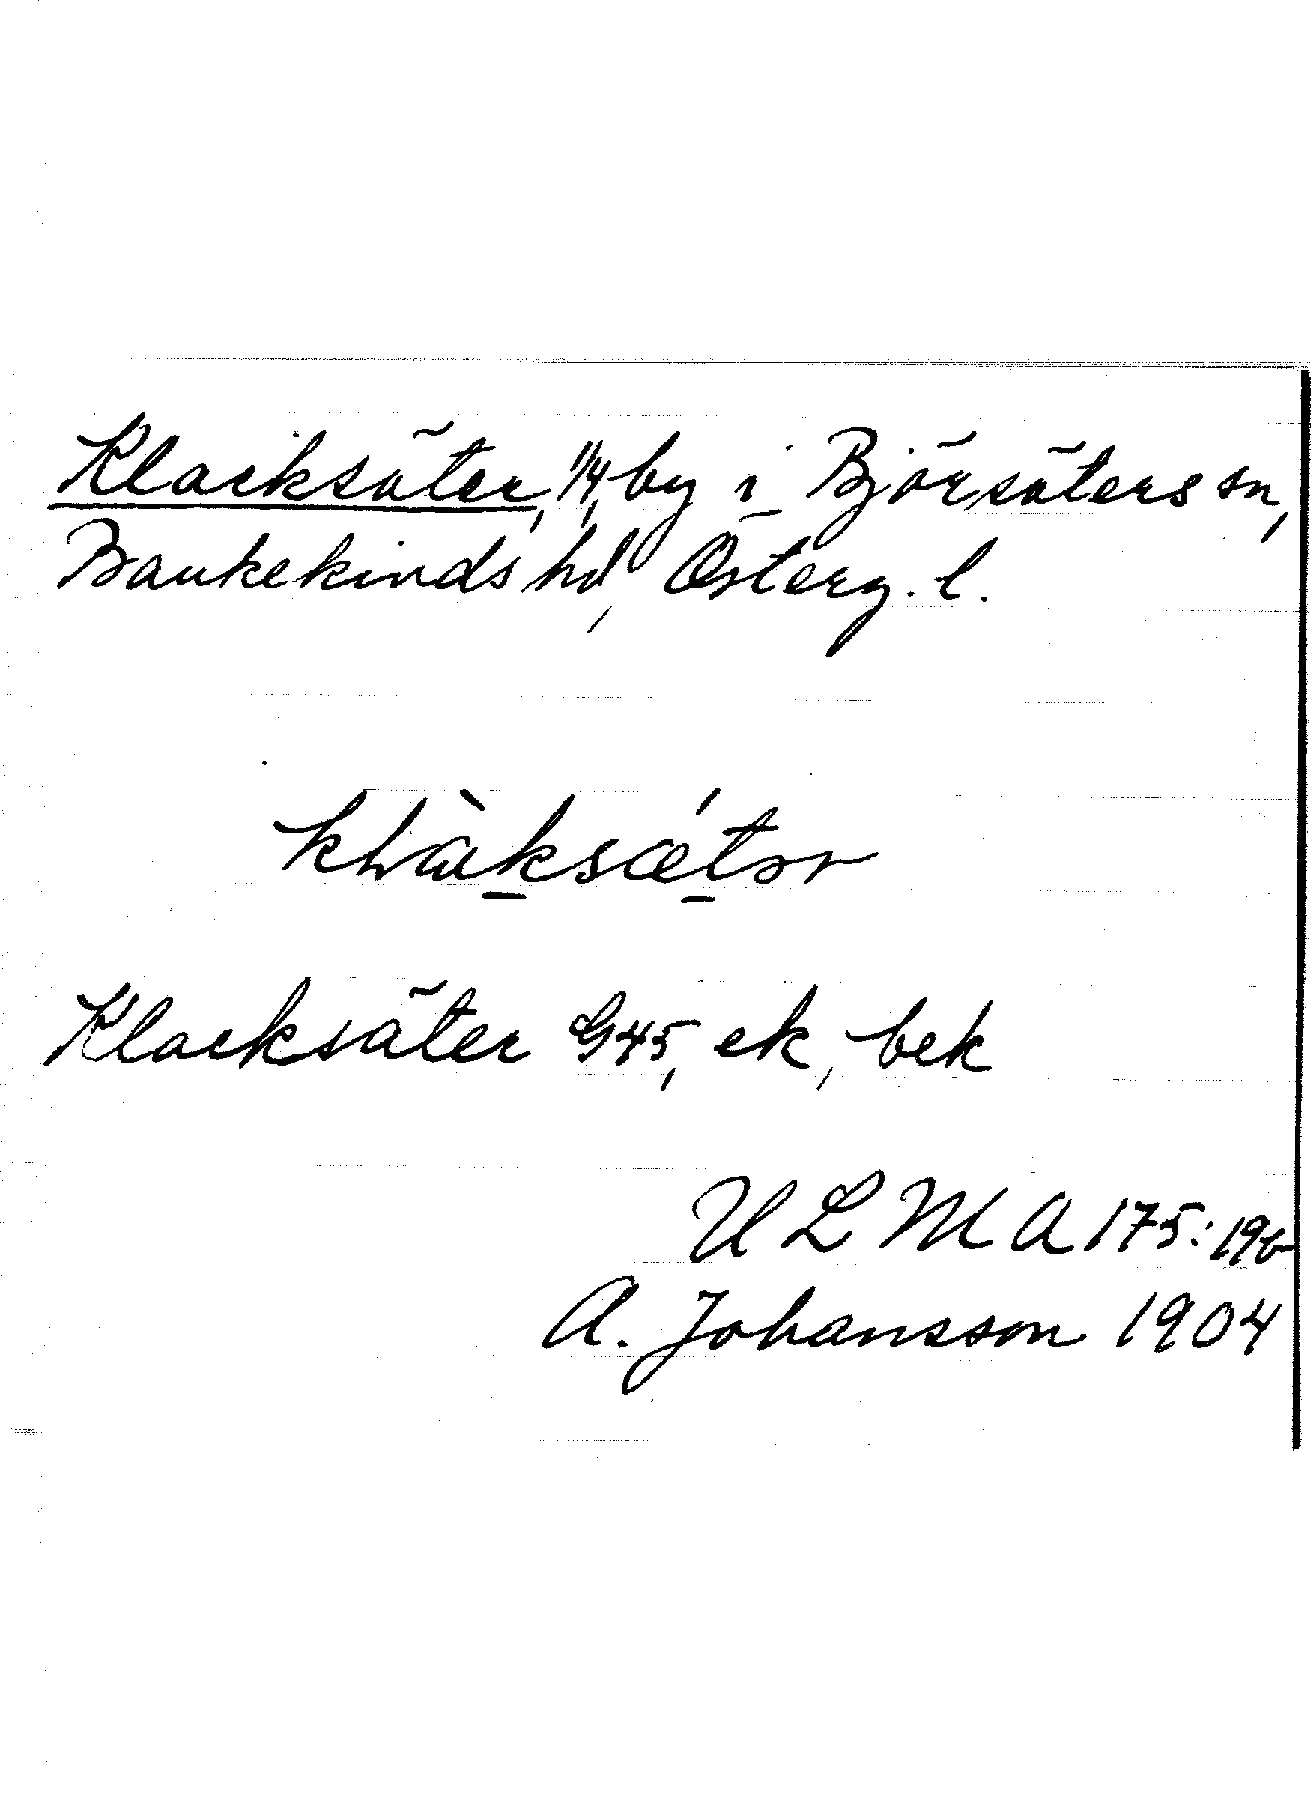 Klacksäter, 1/4, by i Björsäters sn,
Bankekinds hd, Österg. l.
Klacksäter G45, ek, bek
ULMA 175:19b
A. Johansson 1904